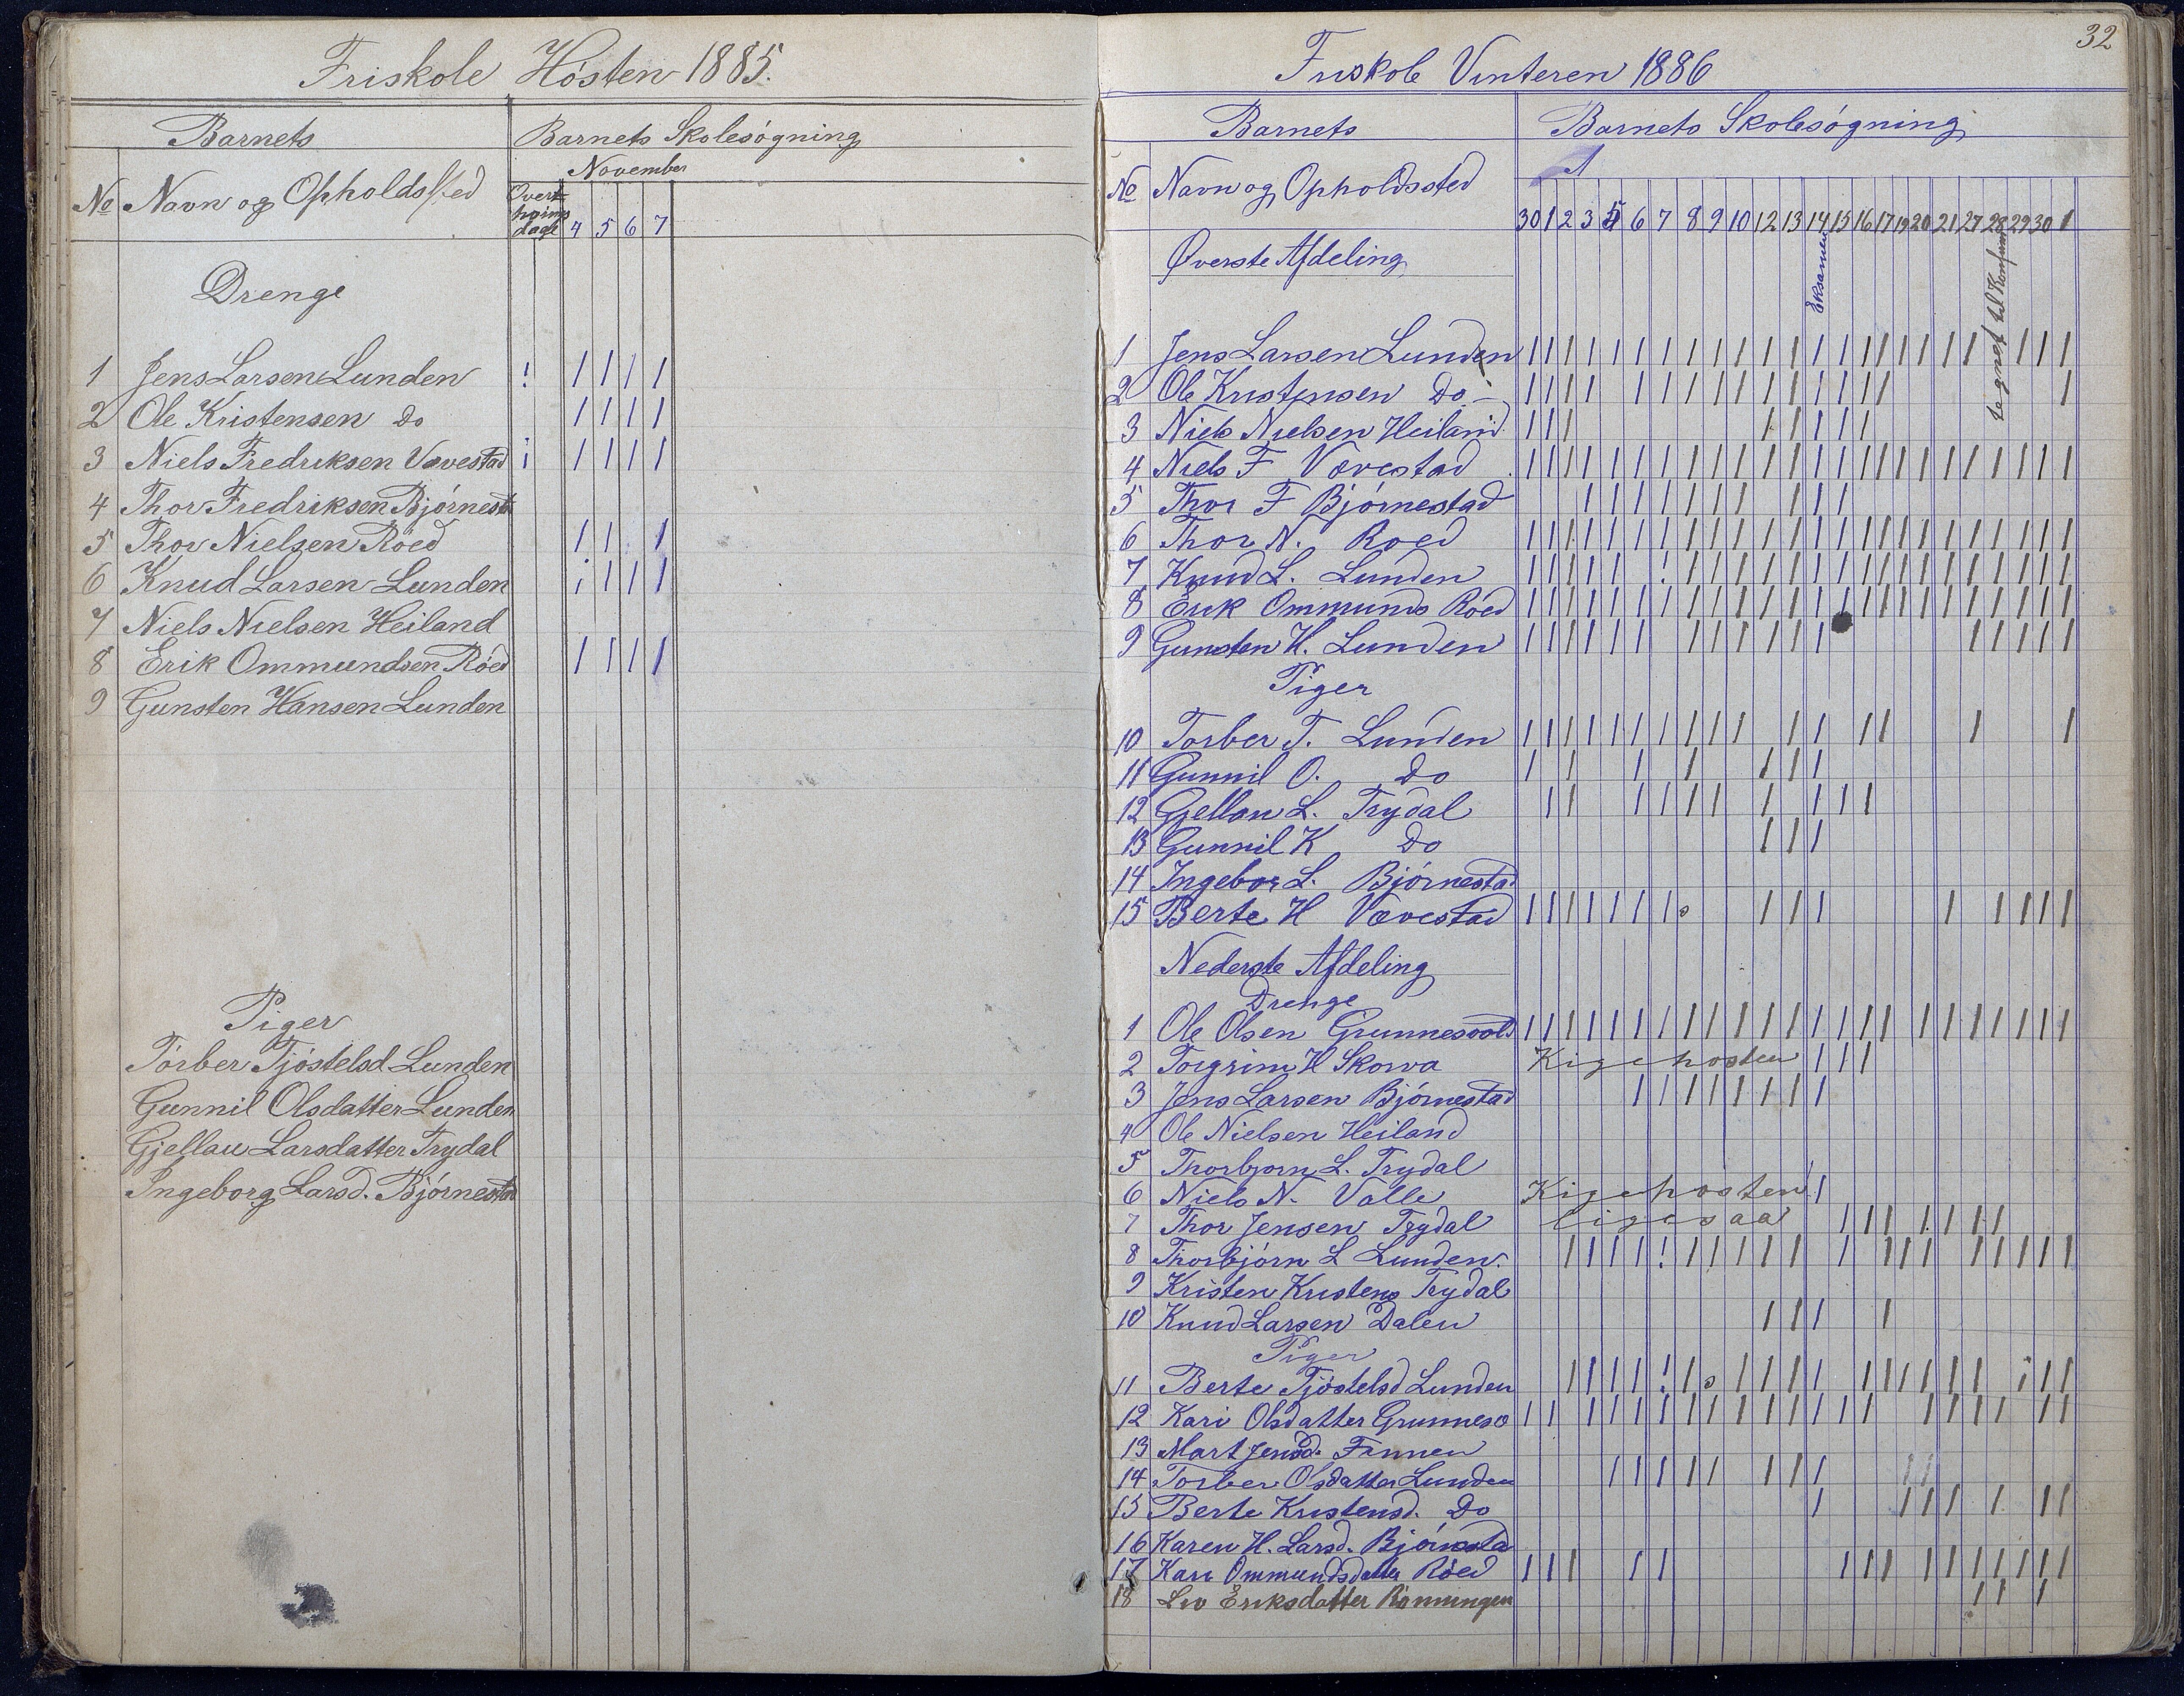 Friskole Høsten 1885.
Barnets
Barnets Skolesøgning
November
No Navn og Opholdssted
4 5 6 7
Drenge
1 Jens Larsen Lunden ! 1 1 1 1
2 Ole Kristensen Do 1 1 1 1
3 Niels Fredriksen Vævestad i 1 1 1 1
4 Thor Fredriksen Bjørnest
5 Thor Nielsen Røed 1 1 1
6 Knud Larsen Lunden i 1 1 1
7 Niels Nielsen Heiland
8 Erik Ommundsen Røed 1 1 1 1
9 Gunsten Hansen Lunden
Piger
Torber Tjøstelsd Lunden
Gunnil Olsdatter Lunden
Gjellau Larsdatter Trydal
Ingeborg Larsd. Bjørnestad
32
Friskole Vinteren 1886
Barnets
Barnets Skolesøgning
No Navn og Opholdssted
30 1 2 3 5 6 7 8 9 10 12 13 14 15 16 17 19 20 21 27 28 29 30 1
Eksamen
Øverste Afdeling
1 Jens Larsen Lunden
2 Ole Kristensen Do
3 Niels Nielsen Heiland
4 Niels F Vævestad
5 Thor F Bjørnestad
6 Thor N. Roed
7 Knud L. Lunden
8 Erik Ommunds Röed
9 Gunsten H. Lunden
Piger
10 Torber T. Lunden
11 Gunnil O. Do
12 Gjellau L. Trydal
13 Gunnil K Do
14 Ingebor L. Bjørnestad
15 Berte H Vævestad
Nederste Afdeling
Drenge
1 Ole Olsen Grunnesvold
2 Torgrim H Skorva Kigehosten
3 Jens Larsen Bjørnestad
4 Ole Nielsen Heiland
5 Thorbjørn L. Trydal
6 Niels N. Valle Kigehosten
7 Thor Jensen Trydal ligesaa
8 Thorbjørn L Lunden.
9 Kristen Kristens Trydal
10 Knud Larsen Dalen
Piger
11 Berte Tjøstelsd Lunden
12 Kari Olsdatter Grunnesv
13 Mart Jensd. Finnen
14 Torber Olsdatter Lunden
15 Berte Kristensd. Do
16 Karen H. Larsd. Bjørnsta
17 Kari Ommundsdatter Röed
18 Liv Eriksdatter Rönningen